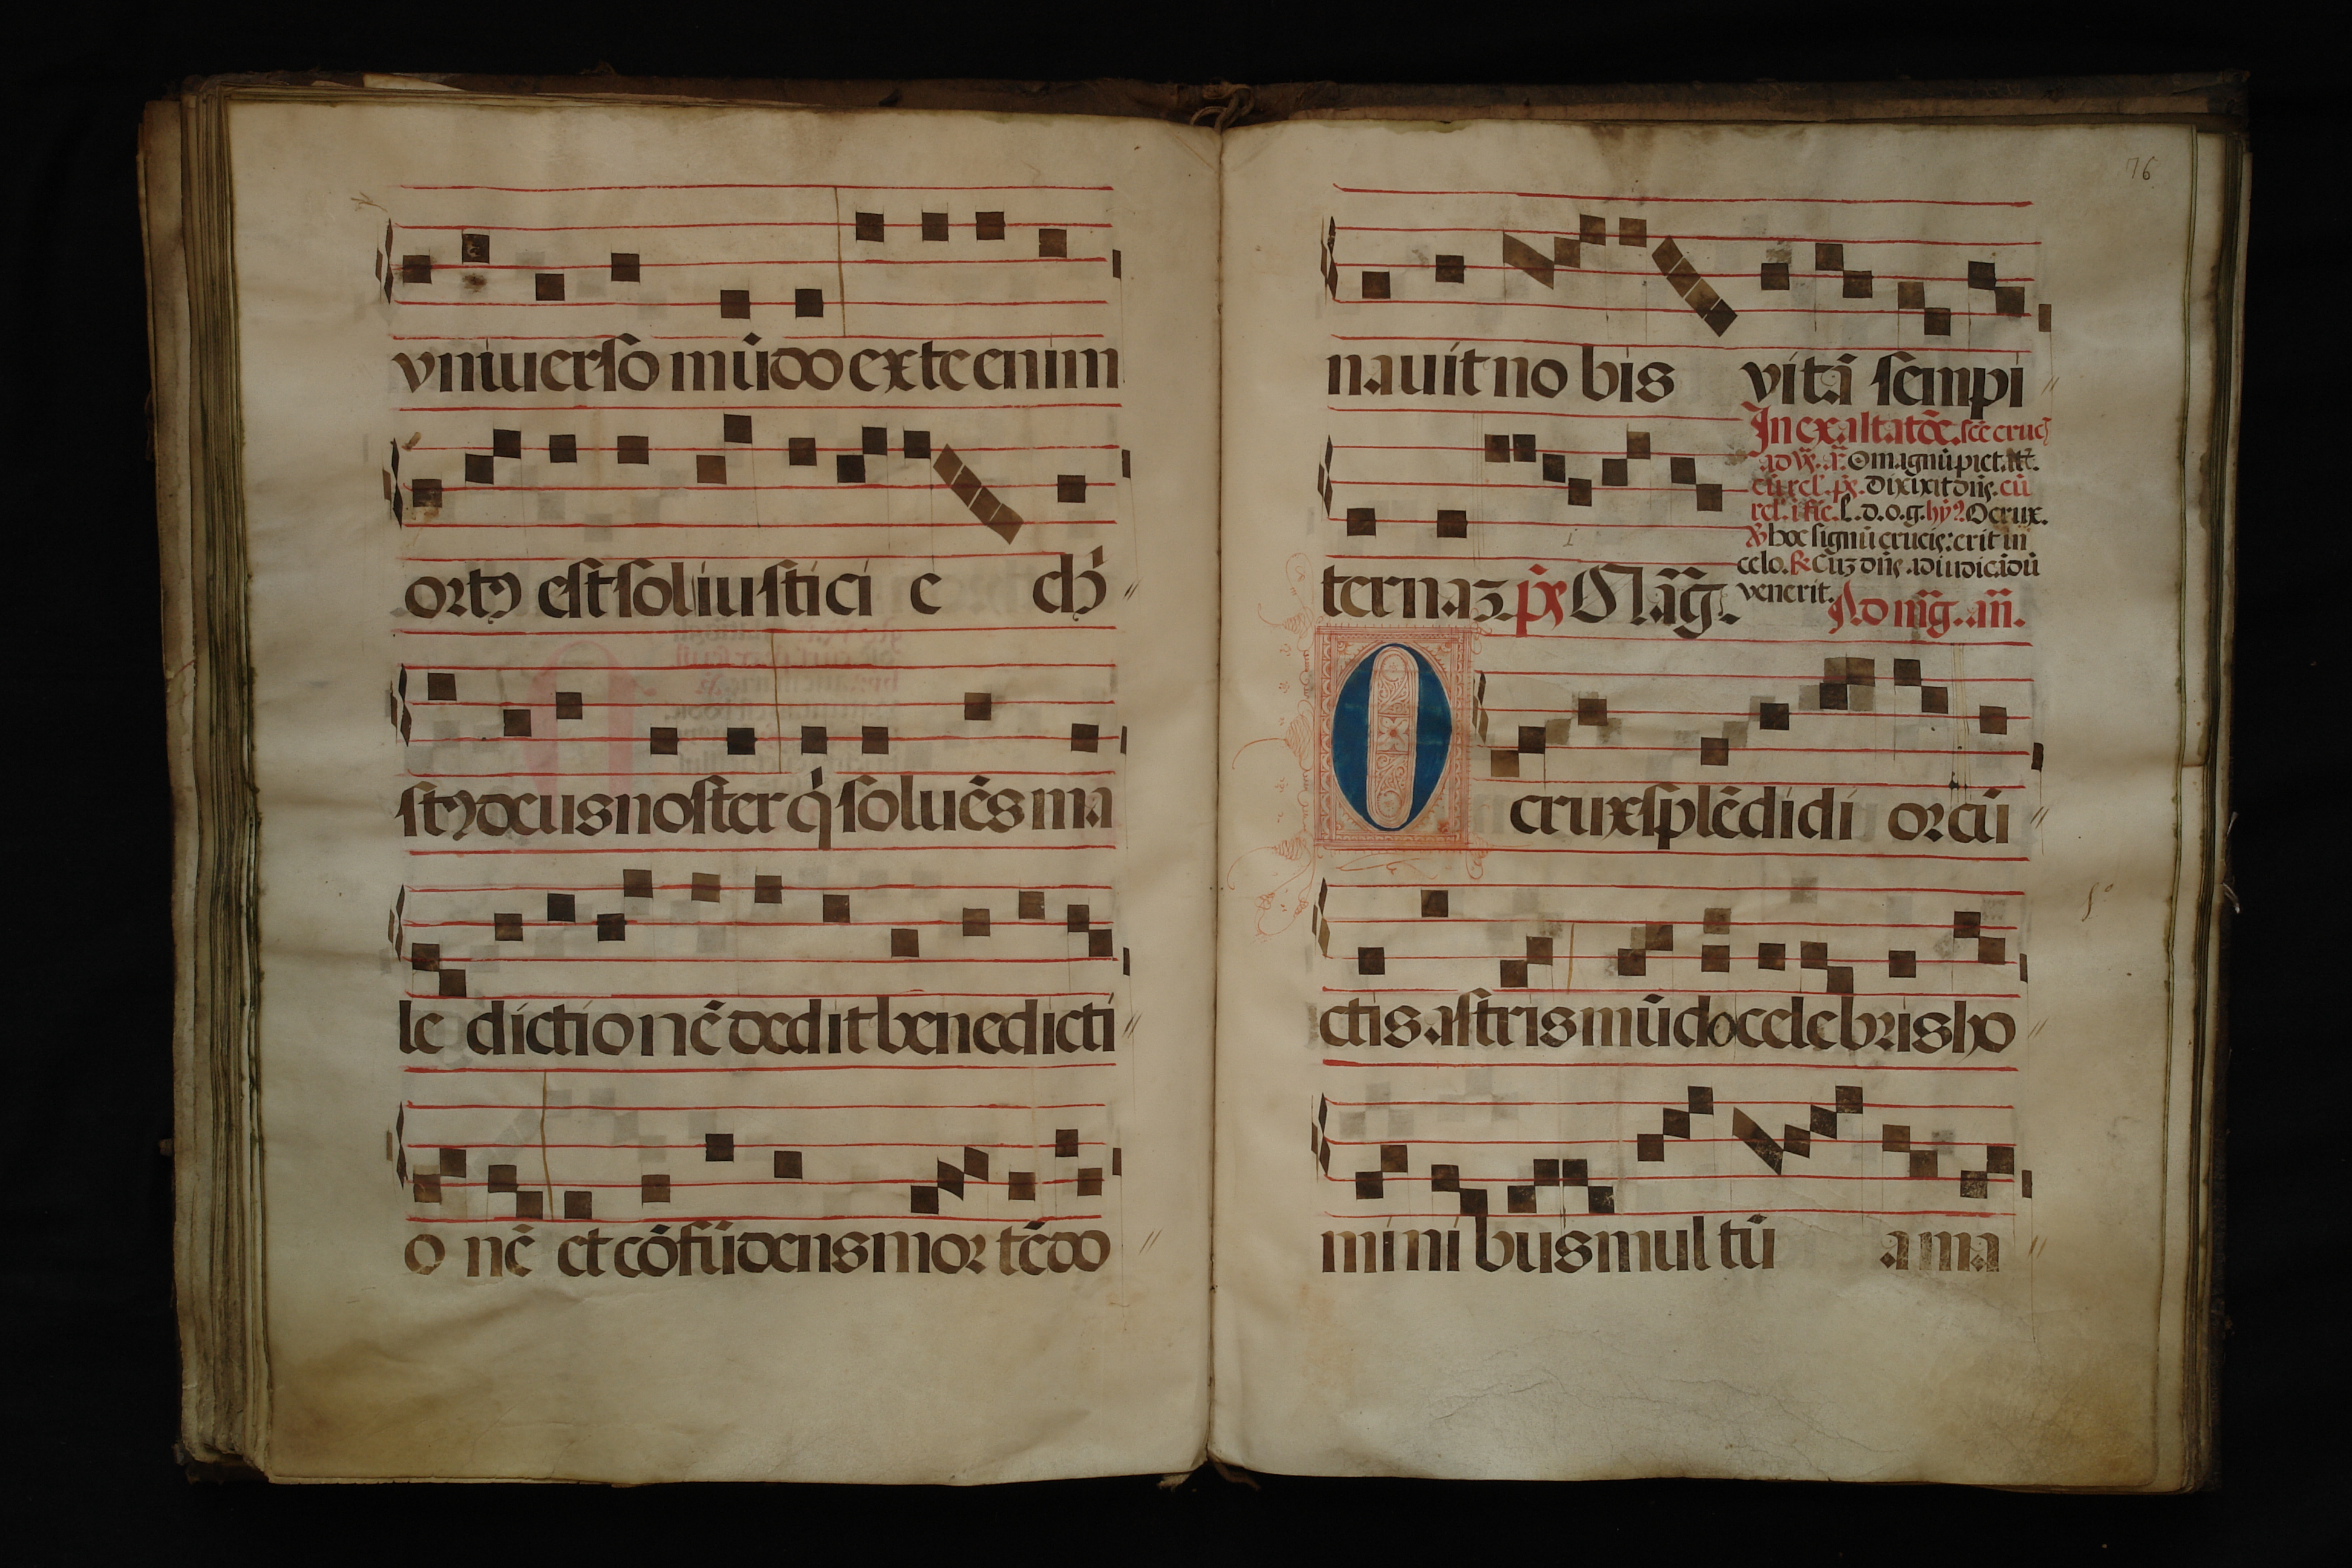 vniuerso mūdo ex te enim
ortꝰ est sol iustici e chꝰ
stꝰ deus noster q̇ soluēs ma
le dictionē dedit benedicti
o nē et cōfūdens mor tē do
76
nauit no bis vitā sempi
In exaltatōe. sc̄e crucꝭ
ad vꝝ. añ. O magnū pietatꝭ.
cū rel. p̄s. Dixit dn̄s. cū
l. d. o. g. hȳ? O crux.
℣ hoc signū crucis: erit in
celo. ℞ Cuꝫ dn̄s. ad iudicādū
venerit. Ad mḡ. añ.
ternaꝫ p̄s Mag̃.
O crux splēdidi orcū
ctis astris mūdo celebris ho
mini bus mul tū ama